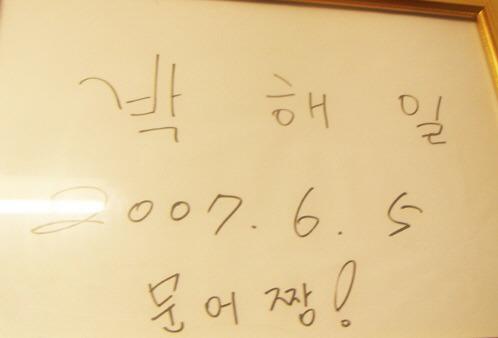 박 해 일
2007. 6. 5
문어 짱!